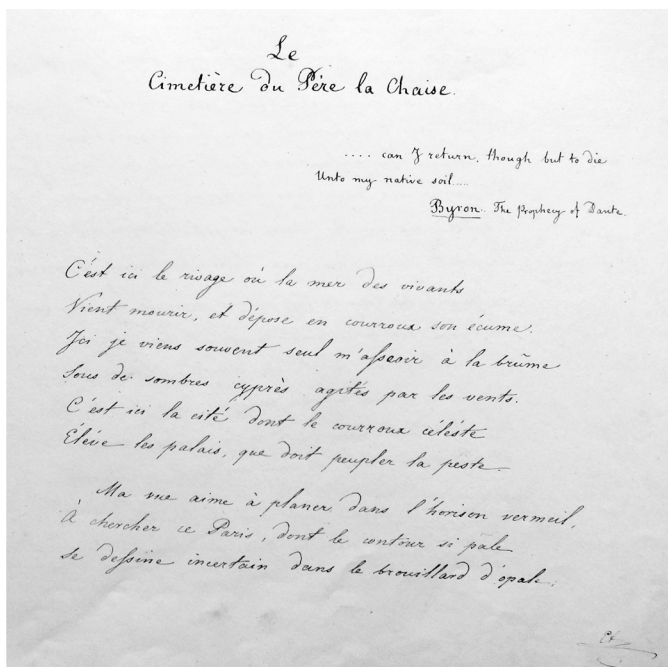 Le
Cimetière du Père la Chaise.
.... can I return, though but to die
Unto my native soil.....
Byron. The Prophecy of Dante.
C'est ici le rivage où la mer des vivants
Vient mourir, et dépose en courroux son écume.
Ici je viens souvent seul m'asseoir à la brûme
Sous de sombres cyprès agités par les vents.
C'est ici la cité dont le courroux céléste
Élève les palais, que doit peupler la peste.
Ma vue aime à planer dans l'horison vermeil,
À chercher ce Paris, dont le contour si pale
Se dessine incertain dans le brouillard d'opale;